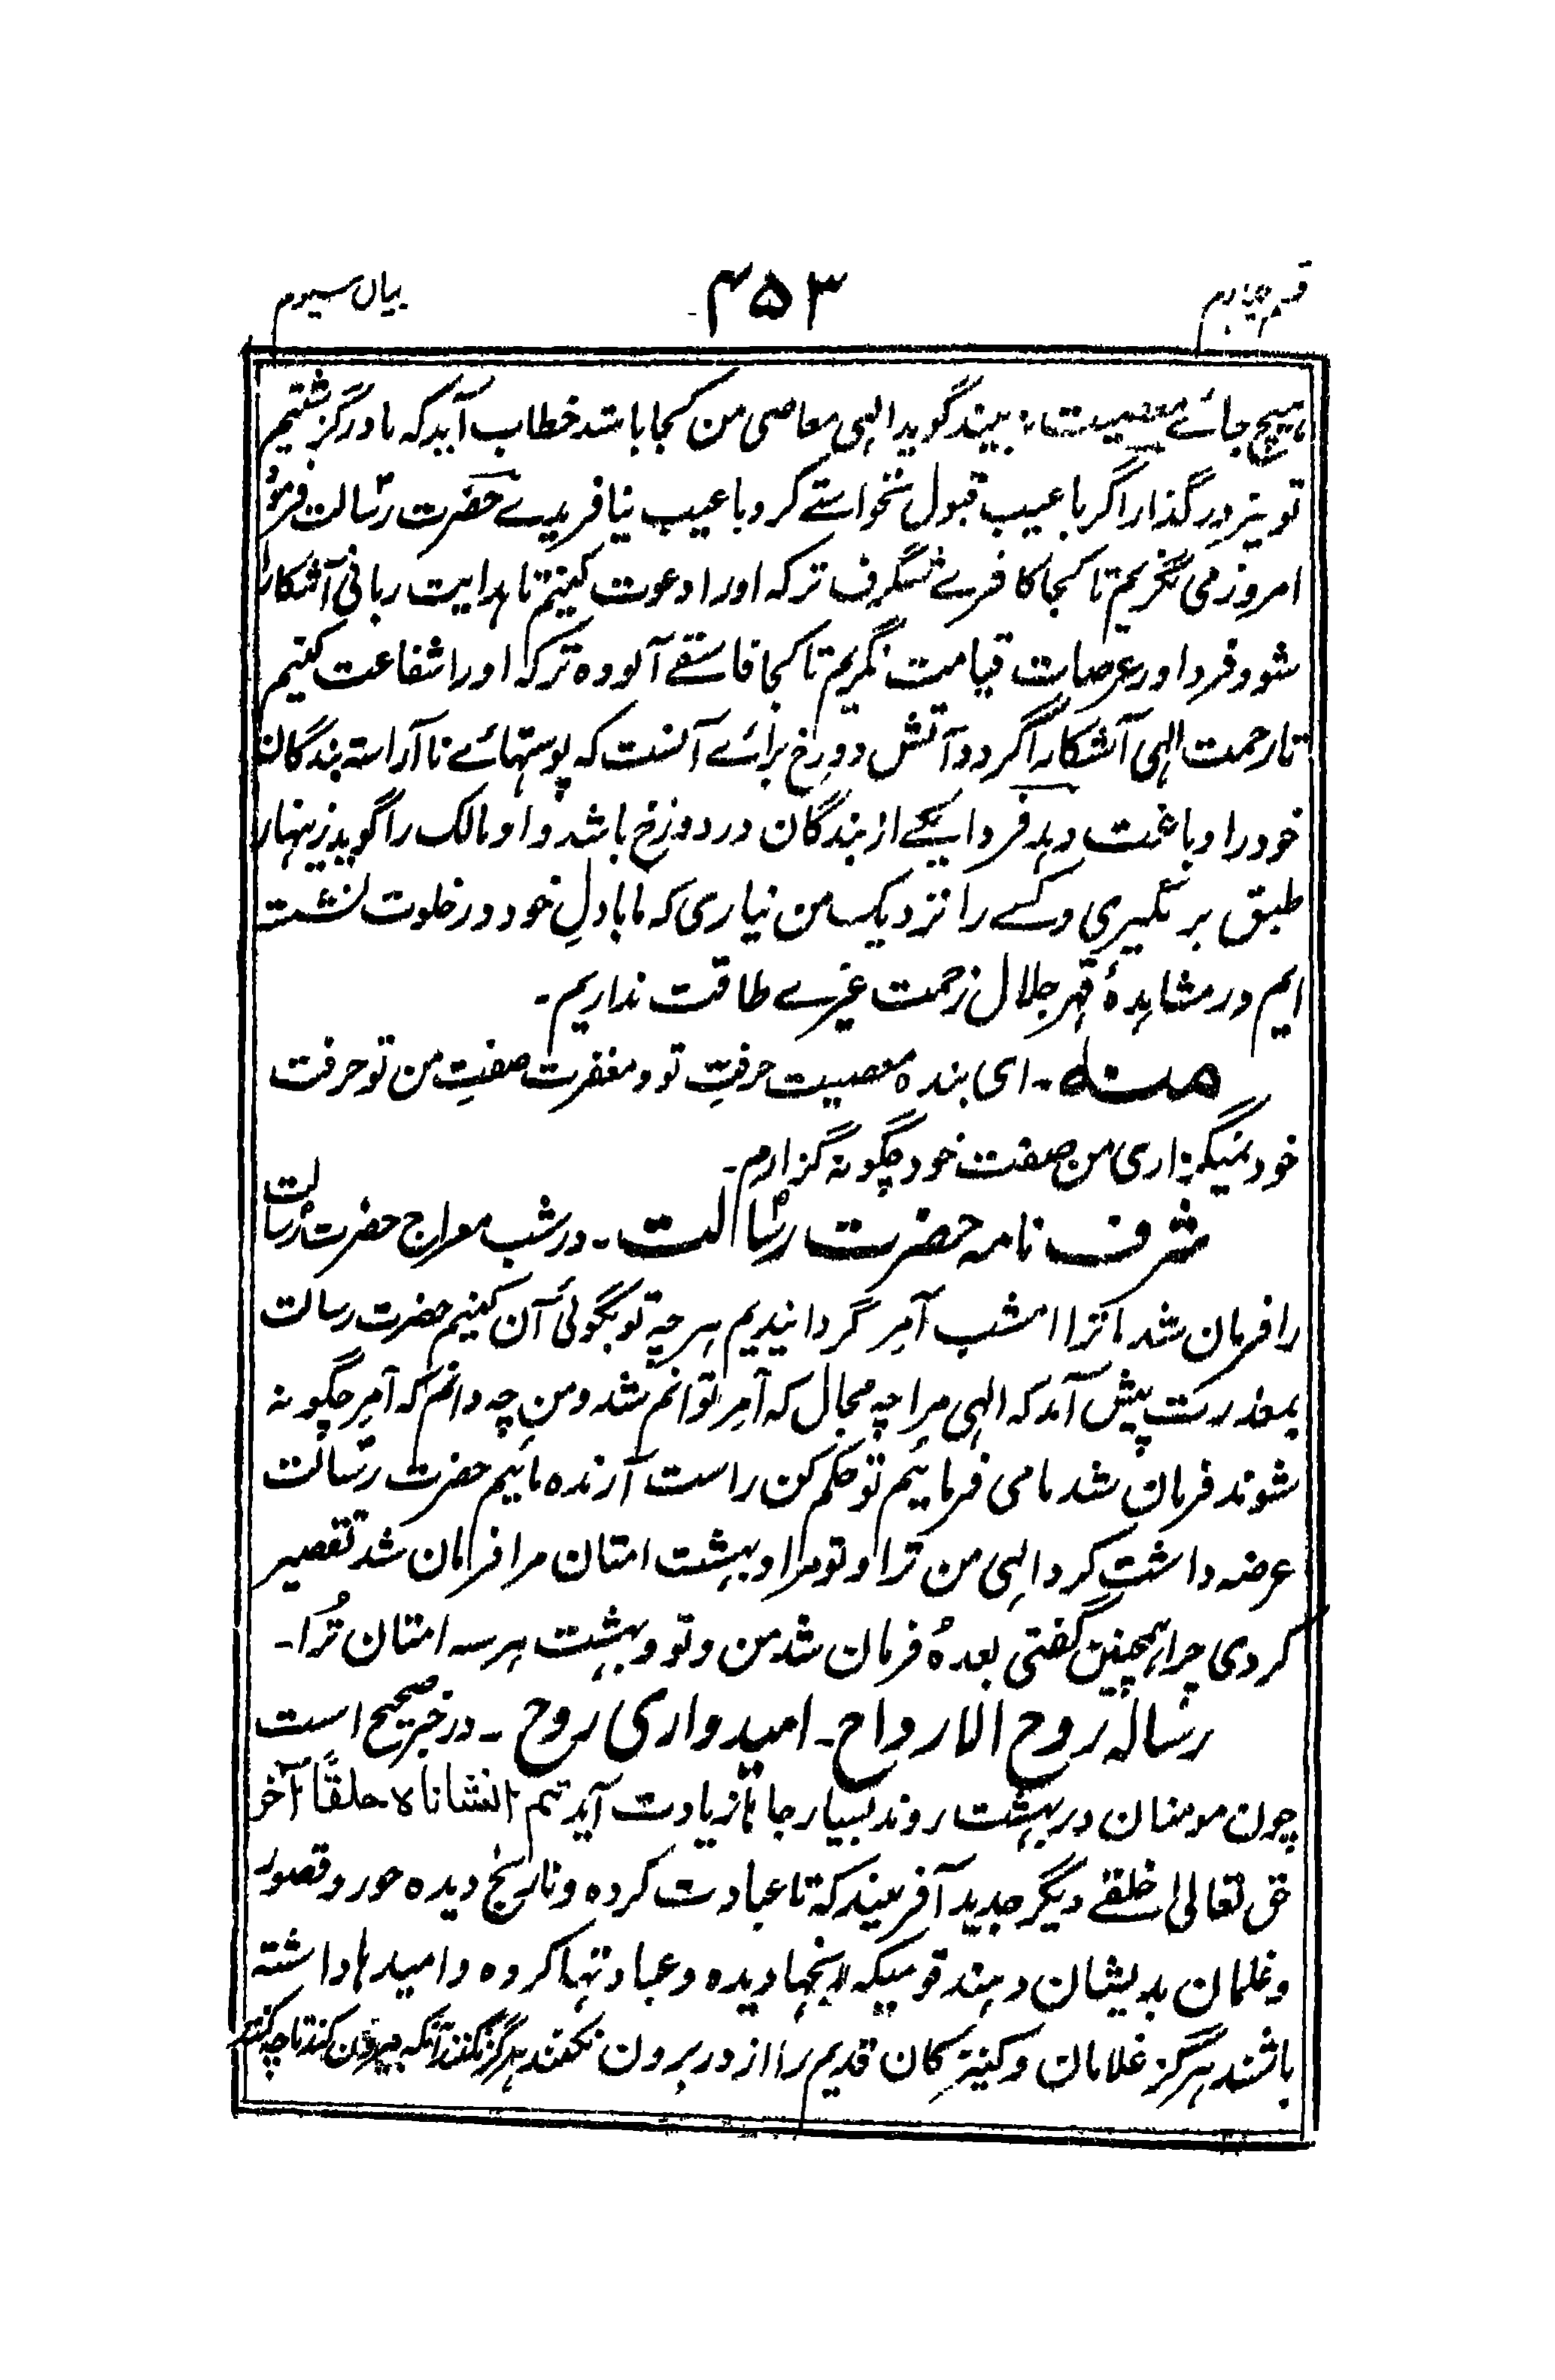 قسم چهارم ۴۵۳ بیان سیوم
هیچ جائے معصیت نہ بیند گوید الٰہی معاصی من کجا باشد خطاب آید کہ ما درگزشتیم
تو نیز درگذار اگر با عیب قبول نخواستے کرد با عیب نیافریدے حضرت رسالت فرمود
امروز می نگریم تا کجا کافرے شگرف ترکہ اورا دعوت کنیم تا ہدایت ربانی آشکارا
شود و فردا در عرصات قیامت نگریم تا کجا فاسقے آلودہ ترکہ اورا شفاعت کنیم
تا رحمت الٰہی آشکارا گردد آتش دوزخ برائے آنست کہ پوستہائے نا آراستہ بندگان
خود را دباغت دہد فردا یکے از بندگان در دوزخ باشد و او مالک را گوید زینہار
طبق برنگیری و کسے را نزدیک من نیاری کہ ما با دلِ خود در خلوت نشستہ
ایم در مشاہدۂ قہر جلال زحمت غیرے طاقت نداریم۔
منہ۔ ای بندہ معصیت حرفتِ تو و مغفرت صفتِ من تو حرفت
خود نمیگذاری من صفت خود چگونہ گزارم۔
شرف نامہ حضرت رسالت۔ در شب معراج حضرت رسالت
را فرمان شد ما ترا امشب آمِر گردانیدیم ہر چہ تو بگوئی آن کنیم حضرت رسالت
بمعذرت پیش آمد کہ الٰہی مرا چہ مجال کہ آمِر توانم شد و من چہ دانم کہ آمِر چگونہ
شوند فرمان شد ما می فرمائیم تو حکم کن راست آرندہ مائیم حضرت رسالت
عرضہ داشت کرد الٰہی من ترا و تو مرا و بہشت امتان مرا فرمان شد تقصیر
کردی چرا ہمچنین گفتی بعدہٗ فرمان شد من و تو و بہشت ہر سہ امتان تُرا۔
رسالہ روح الارواح۔ امیدواری روح۔ در خبر صحیح است
چون مومنان در بہشت روند بسیار جاہا زیادت آید ثم انشاناہ خلقًا آخر
حق تعالیٰ خلقے دیگر جدید آفریند کہ نا عبادت کردہ و نا رنج دیدہ حور و قصور
و غلمان بدیشان دہند قومیکہ رنجہا دیدہ و عبادتہا کردہ و امیدہا داشتہ
باشند ہرگز غلامان و کنیزکان قدیم را از در برون نکنند ہرگز نکنند آنکہ بیرون کنند تا چہ کنند